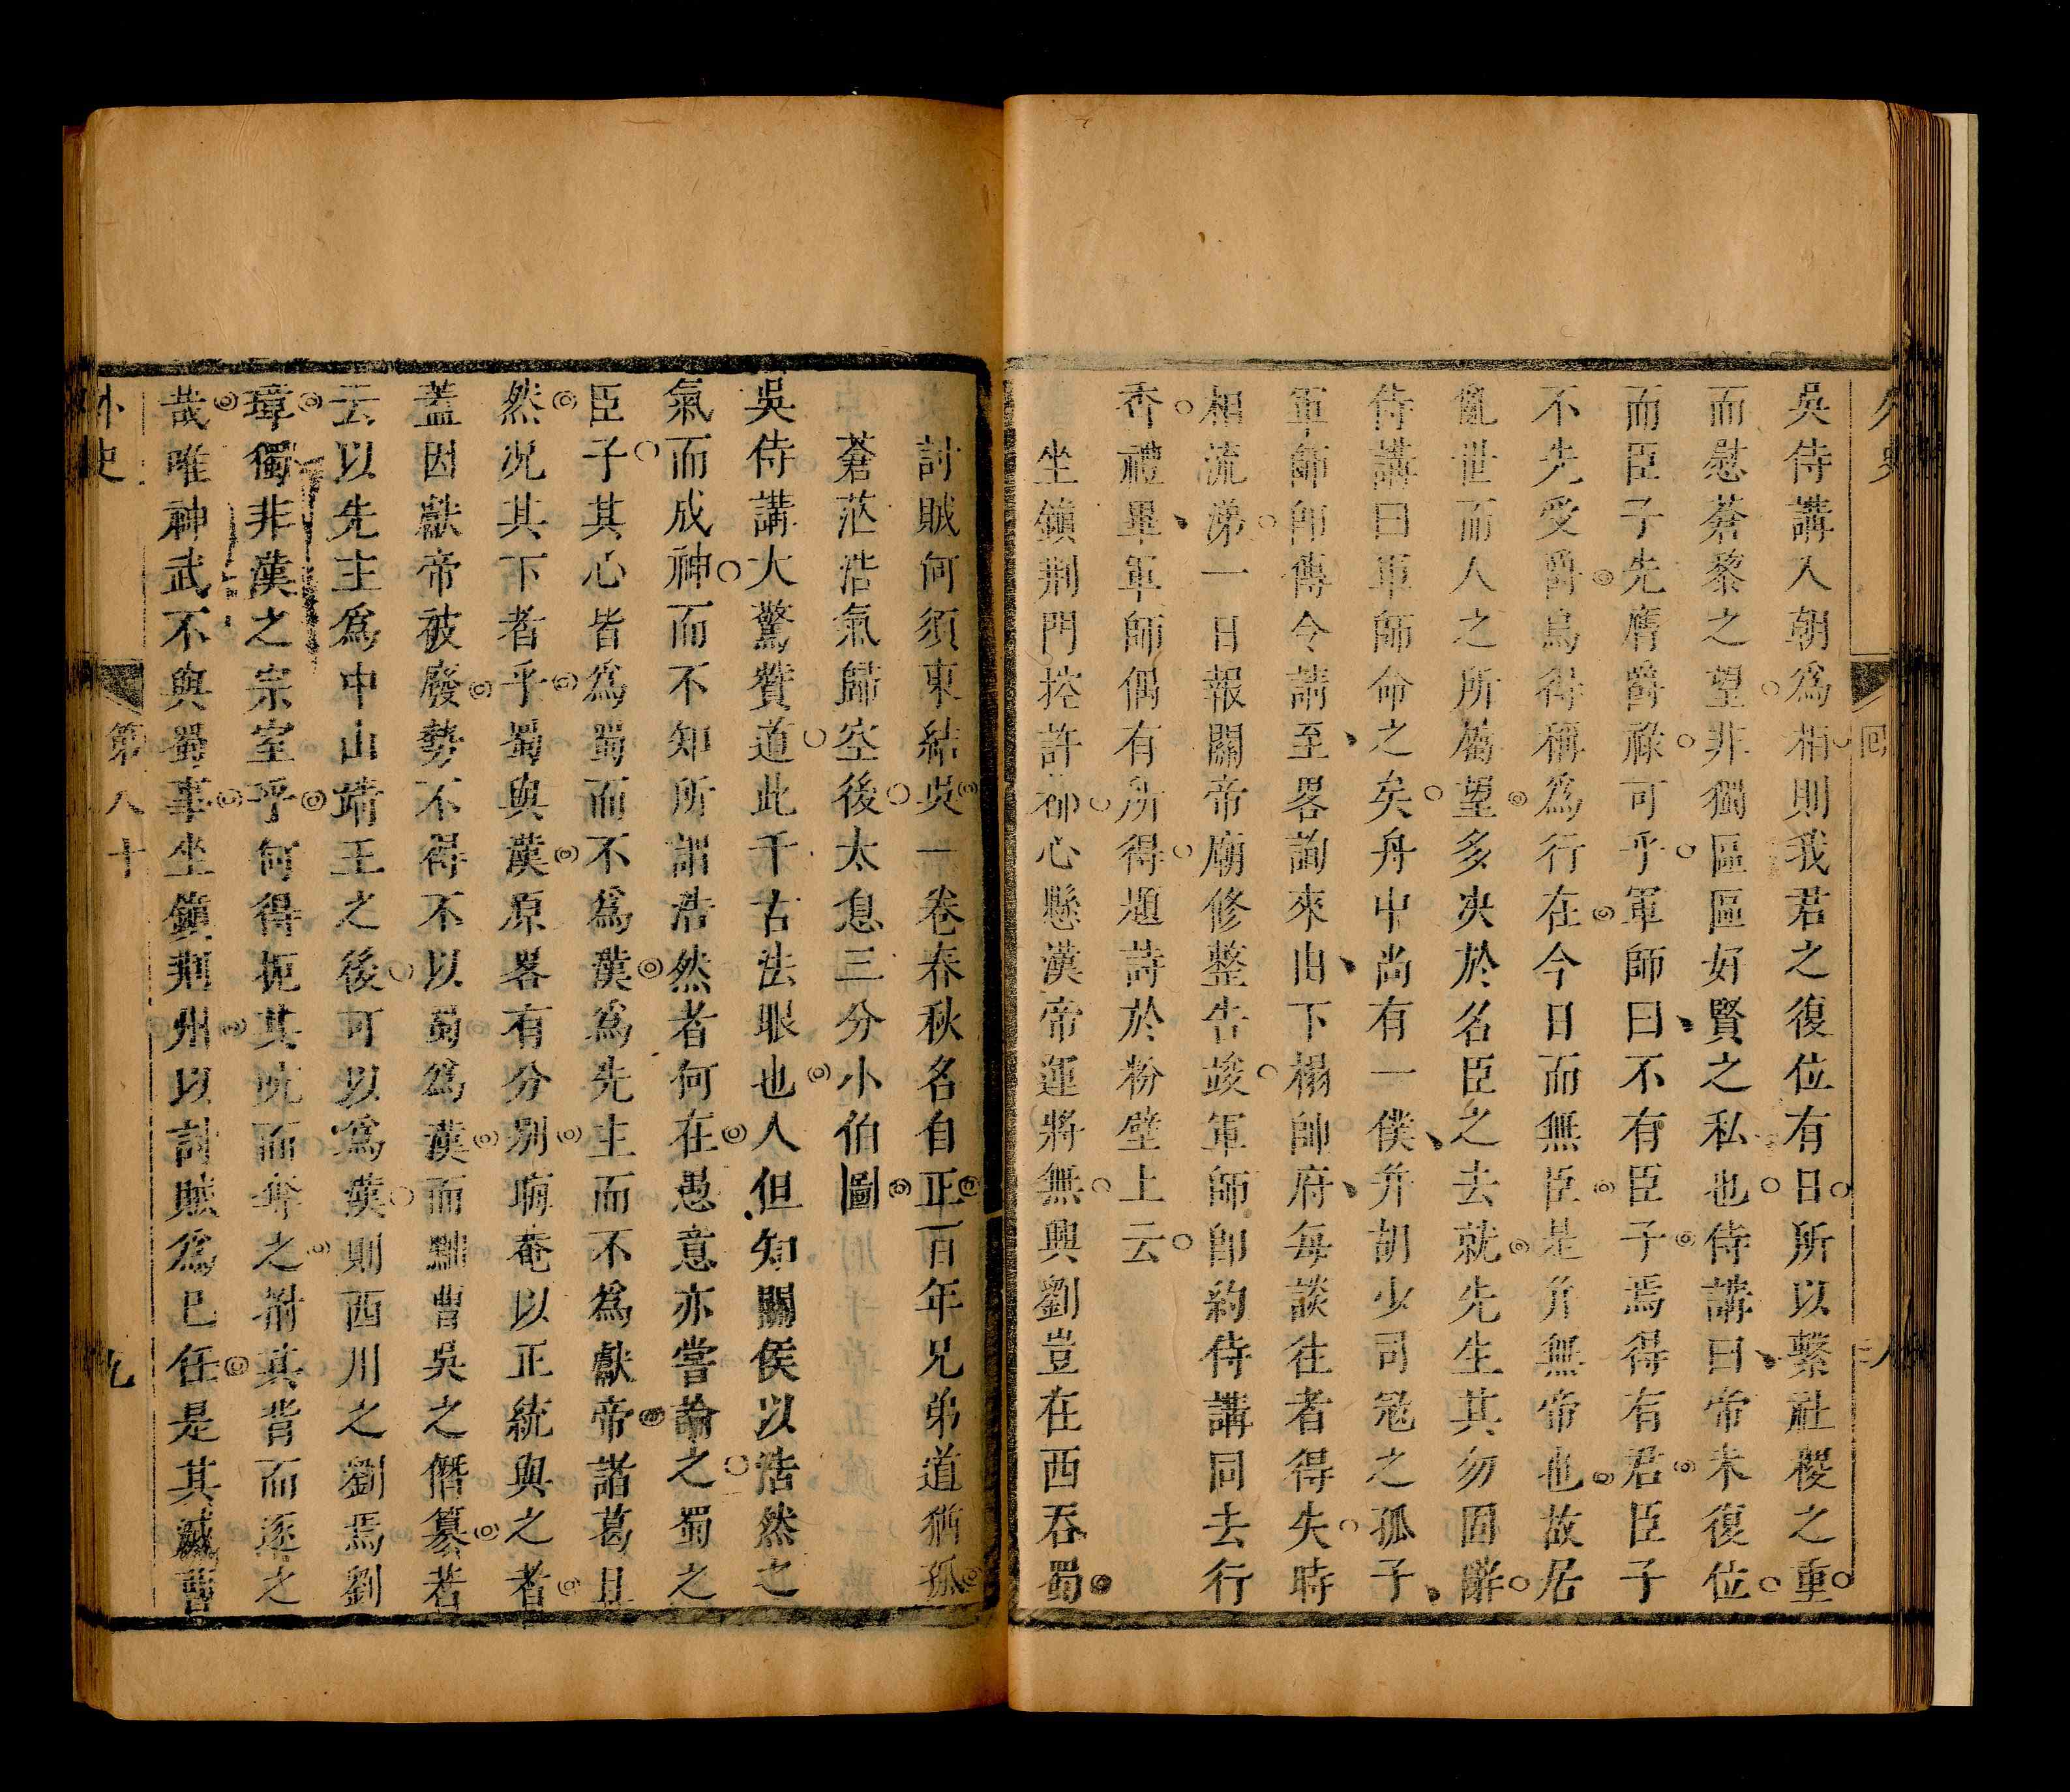 吳侍講入朝爲相則我君之復位有日所以繫社稷之重
而慰蒼黎之望非獨區區好賢之私也侍講曰帝未復位
而臣子先膺爵祿可乎軍師曰不有臣子焉得有君臣子
不先受爵烏得稱爲行在今日而無臣是并無帝也故居
亂世而人之所屬望多决於名臣之去就先生其勿固辭
侍講曰軍師命之矣舟中尚有一僕并胡少司冦之孤子
軍師卽傳令請至畧詢來由下榻帥府每談往者得失時
相流涕一日報關帝廟修整告竣軍師卽約侍講同去行
香禮畢軍師偶有所得題詩於粉壁上云
坐鎭荆門控許都心懸漢帝運將無興劉豈在西吞蜀
討賊何須東結吳一卷春秋名自正百年兄弟道猶孤
蒼茫浩氣歸空後太息三分小伯圖
吳侍講大驚贊道此千古法眼也人但知關侯以浩然之
氣而成神而不知所謂浩然者何在愚意亦嘗論之蜀之
臣子其心皆爲蜀而不爲漢爲先主而不爲獻帝諸葛且
然况其下者乎蜀與漢原畧有分别晦菴以正統與之者
蓋因獻帝被廢勢不得不以蜀爲漢而黜曹吳之僭篡若
云以先主爲中山靖王之後可以爲漢則西川之劉焉劉
璋獨非漢之宗室乎何得扼其吭而奪之掯其背而逐之
哉唯神武不與蜀事坐鎭荆州以討賊爲已任是其滅曹
外史
第八十
九